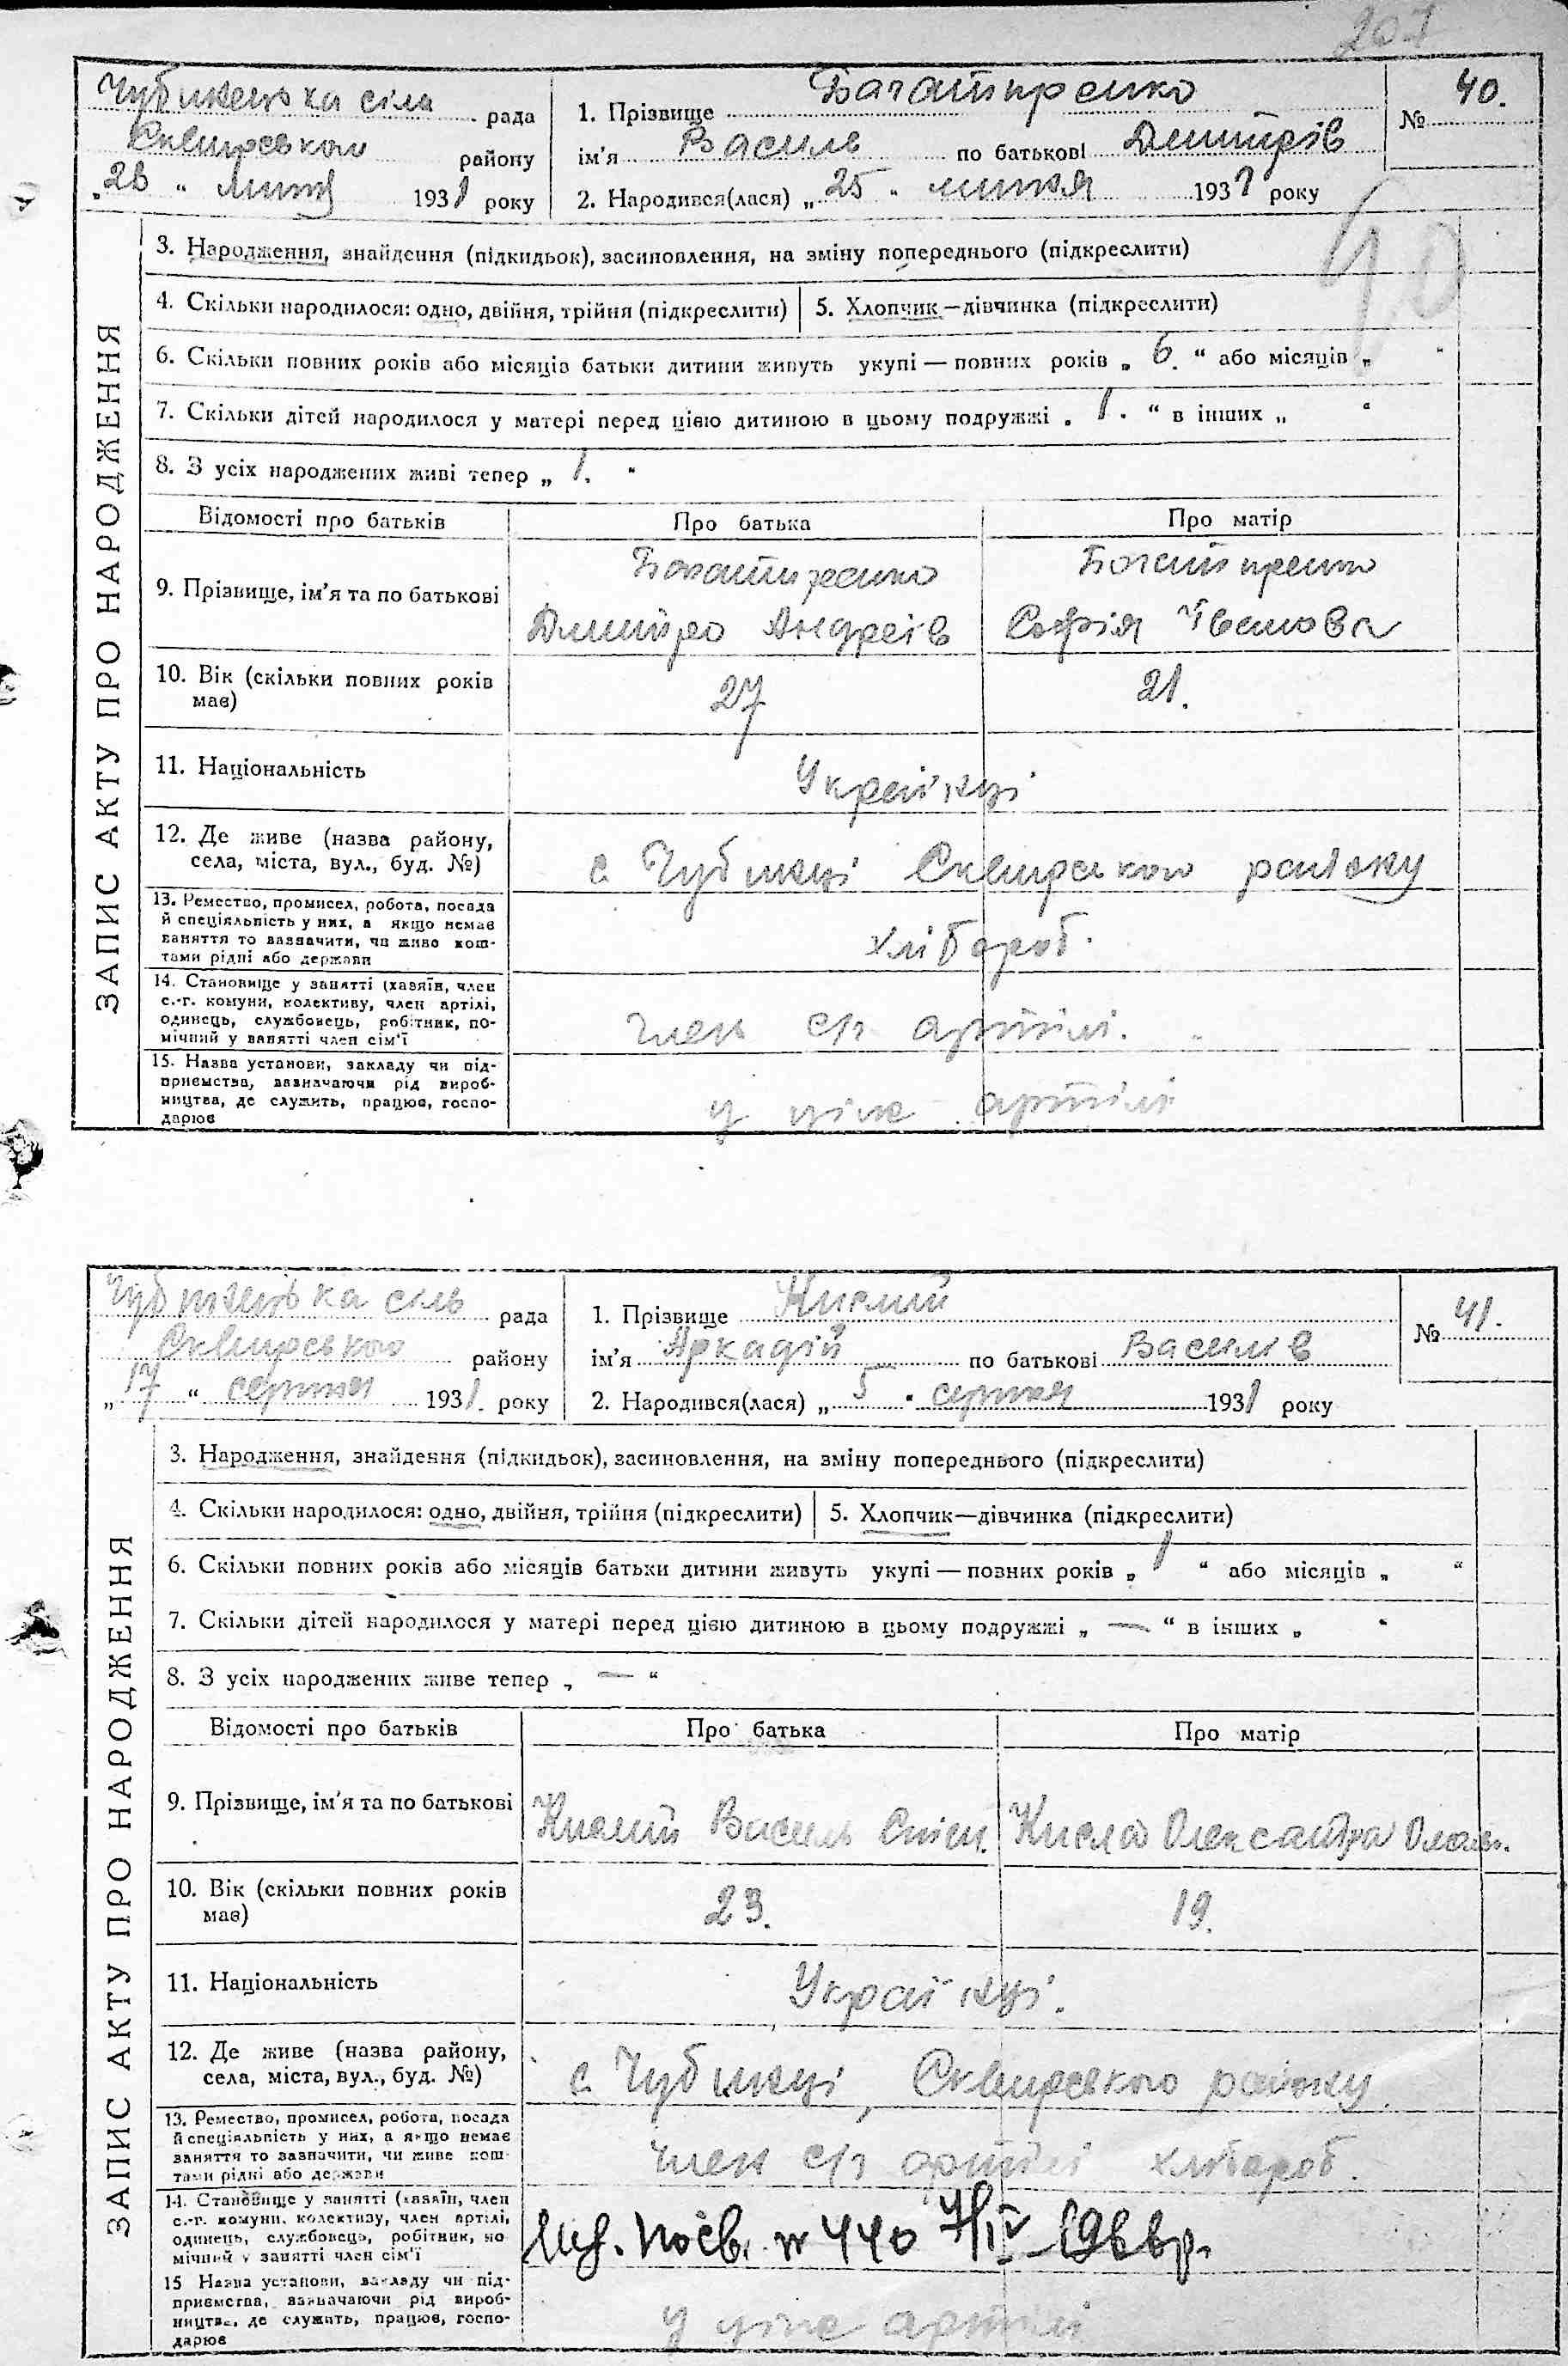 207
Чубинецька сіль рада
Сквирського району
„ 28 “ липня 1931 року
1. Прізвище Багатиренко
ім’я Василь по батькові Дмитрів
2. Народився(лася) „ 25 “ липня 1931 року
№ 40.
40
ЗАПИС АКТУ ПРО НАРОДЖЕННЯ
3. Народження, знайдення (підкидьок), засиновлення, на зміну попереднього (підкреслити)
4. Скільки народилося: одно, двійня, трійня (підкреслити) 5. Хлопчик—дівчинка (підкреслити)
6. Скільки повних років або місяців батьки дитини живуть укупі — повних років „ 6. “ або місяців „ “
7. Скільки дітей народилося у матері перед цією дитиною в цьому подружжі „ 1. “ в інших „ “
8. З усіх народжених живі тепер „ 1. “
Відомості про батьків Про батька Про матір
9. Прізвище, ім’я та по батькові
Богатиренко
Дмитро Андреів
Богатиренко
Софія Іванова
10. Вік (скільки повних років
має)
27
21.
11. Національність
Українці
12. Де живе (назва району,
села, міста, вул., буд. №)
с Чубинці Сквирського району
13. Ремество, промисел, робота, посада
й спеціяльність у них, а якщо немає
заняття то зазначити, чи живе кош-
тами рідні або держави
хлібороб.
14. Становище у занятті (хазяїн, член
с.-г. комуни, колективу, член артілі,
одинець, службовець, робітник, по-
мічний у занятті член сім’ї
член с/г артілі.
15. Назва установи, закладу чи під-
приємства, зазначаючи рід вироб-
ництва, де служить, працює, госпо-
дарює
у артілі
Чубинецька сіль рада
Сквирського району
„ 17 “ серпня 1931. року
1. Прізвище Кислий
ім’я Аркадій по батькові Василів
2. Народився(лася) „ 5 “ серпня 1931 року
№ 41.
ЗАПИС АКТУ ПРО НАРОДЖЕННЯ
3. Народження, знайдення (підкидьок), засиновлення, на зміну попереднього (підкреслити)
4. Скільки народилося: одно, двійня, трійня (підкреслити) 5. Хлопчик—дівчинка (підкреслити)
6. Скільки повних років або місяців батьки дитини живуть укупі — повних років „ 1 “ або місяців „ “
7. Скільки дітей народилося у матері перед цією дитиною в цьому подружжі „ — “ в інших „ “
8. З усіх народжених живе тепер „ — “
Відомості про батьків Про батька Про матір
9. Прізвище, ім’я та по батькові
Кислий Василь
Кисла Олександра
10. Вік (скільки повних років
має)
23.
19.
11. Національність
Українці.
12. Де живе (назва району,
села, міста, вул., буд. №)
с. Чубинці, Сквирського району.
13. Ремество, промисел, робота, посада
й спеціяльність у них, а якщо немає
заняття то зазначити, чи живе кош-
тами рідні або держави
член с/г артілі хлібороб.
14. Становище у занятті (хазяїн, член
с.-г. комуни, колективу, член артілі,
одинець, службовець, робітник, по-
мічний у занятті член сім’ї
№ 440 7/IV 196 р.
15 Назва установи, закладу чи під-
приємства, зазначаючи рід вироб-
ництва, де служить, працює, госпо-
дарює
у артілі